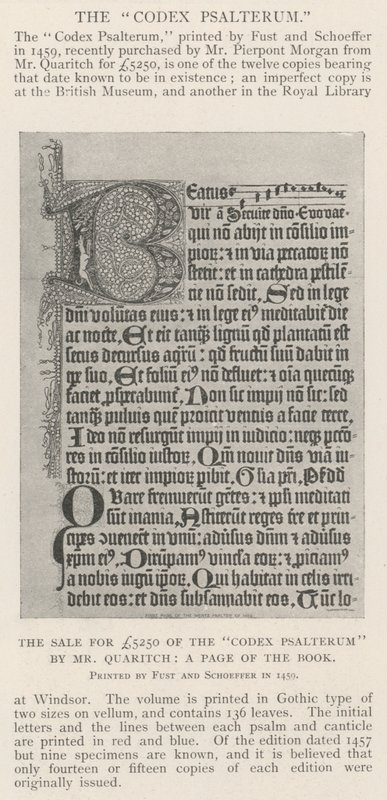 THE "CODEX PSALTERUM."
The "Codex Psalterum," printed by Fust and Schoeffer
in 1459, recently purchased by Mr. Pierpont Morgan from
Mr. Quaritch for £5250, is one of the twelve copies bearing
that date known to be in existence; an imperfect copy is
at the British Museum, and another in the Royal Library
Beatus
vir ā Seruite dño. Evovae.
qui nō abijt in cōsilio im-
pioꝝ: ⁊ in via pctatoꝝ nō
stetit: et in cathedra pestilē-
tie nō sedit, Sed in lege
dñi volūtas eius: ⁊ in lege eiꝰ meditabit̄ die
ac nocte, Et erit tanqȝ lignū qd̄ plantatū est
secus decursus aqꝝ: qd̄ fructū suū dabit in
tꝑe suo, Et foliū eiꝰ nō defluet: ⁊ oīa quecūqȝ
faciet ꝓsperabunt̄, Non sic impij nō sic: sed
tanqȝ puluis quē proicit ventus a facie terre,
Ideo nō resurgūt impij in iudicio: neqȝ pctō-
res in cōsilio iustoꝝ, Qm̄ nouit dn̄s viā iu-
storū: et iter impioꝝ ꝑibit, Gl̄ia pr̄i, Ps̄ dd̄
Quare fremuerūt gētes: ⁊ ppl̄i meditati
sūt inania, Astiterūt reges tr̄e et prin-
cipes ꝯuenerūt in vnū: aduꝰsus dn̄m ⁊ aduꝰsus
xpm̄ eiꝰ, Dirūpamꝰ vincl̄a eoꝝ: ⁊ ꝓiciamꝰ
a nobis iugū ip̄oꝝ, Qui habitat in celis irri-
debit eos: et dn̄s subsannabit eos, Tūc lo-
FIRST PAGE OF THE MENTZ PSALTER OF 1459.
THE SALE FOR £5250 OF THE "CODEX PSALTERUM"
BY MR. QUARITCH: A PAGE OF THE BOOK.
PRINTED BY FUST AND SCHOEFFER IN 1459.
at Windsor. The volume is printed in Gothic type of
two sizes on vellum, and contains 136 leaves. The initial
letters and the lines between each psalm and canticle
are printed in red and blue. Of the edition dated 1457
but nine specimens are known, and it is believed that
only fourteen or fifteen copies of each edition were
originally issued.